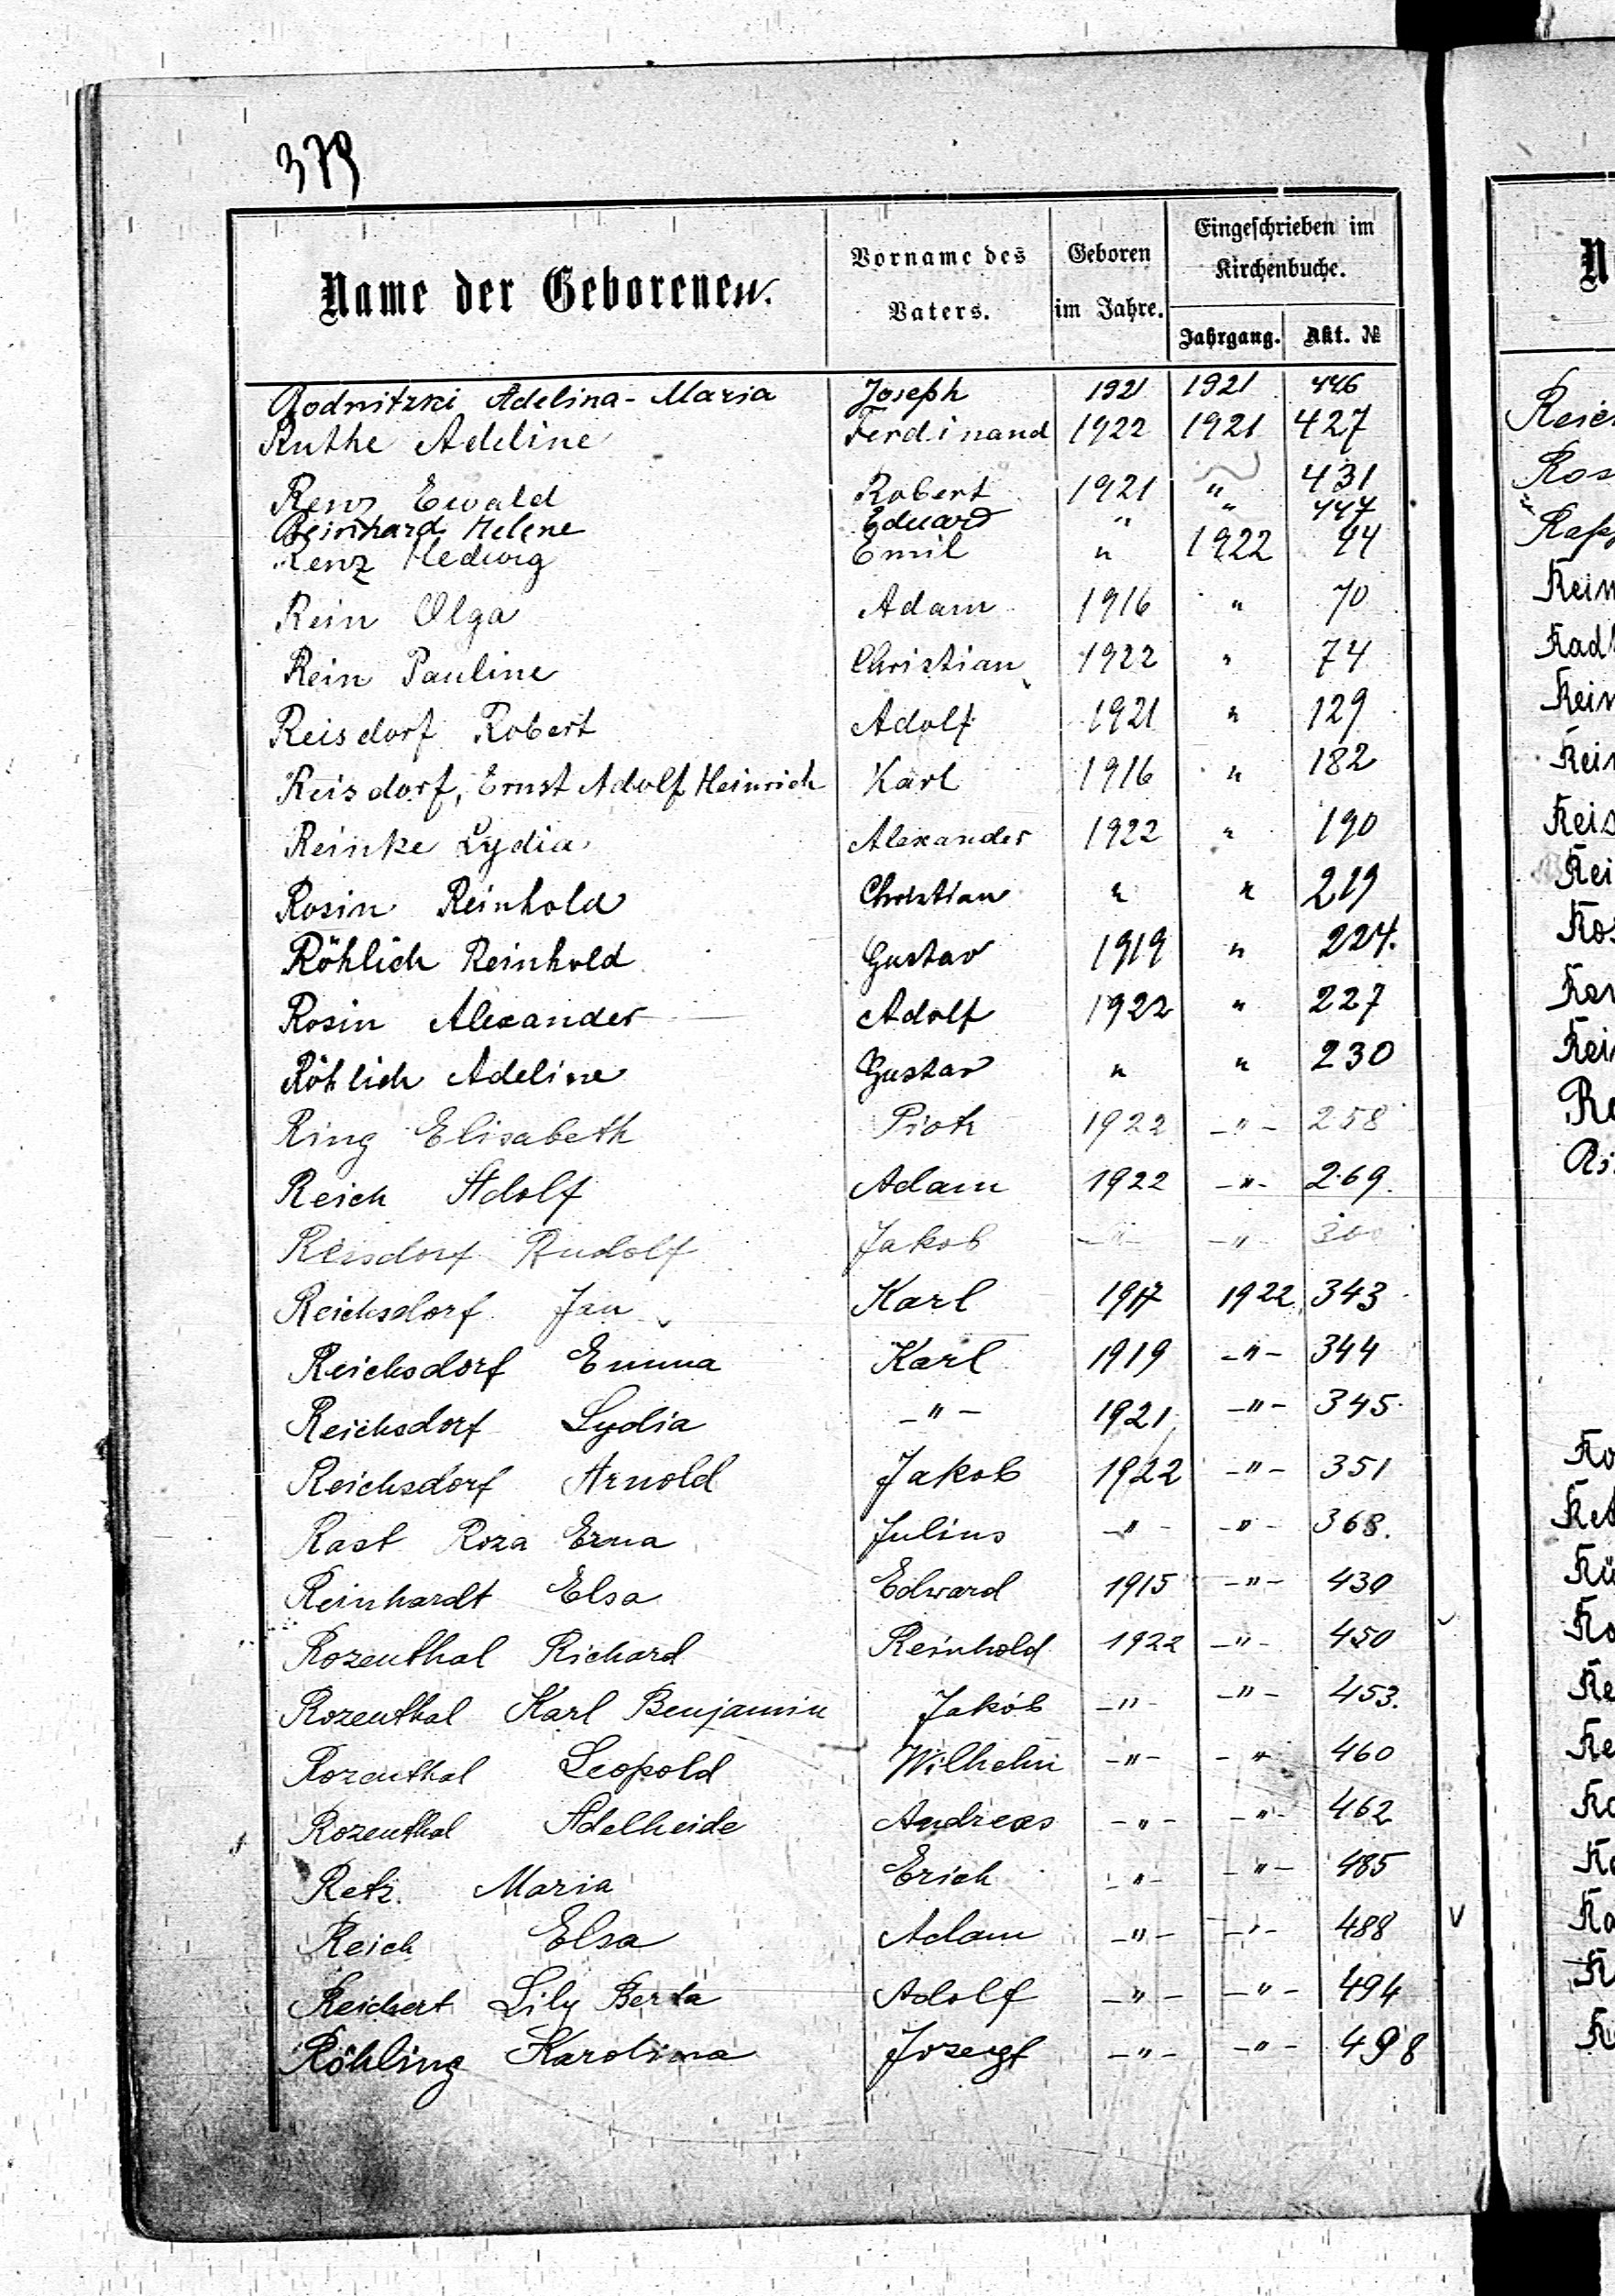 379
Name der Geborenen.
Vorname des Vaters.
Geboren im Jahre.
Eingeschrieben im Kirchenbuche.
Jahrgang. Akt. №
Rodnitzki Adelina-Maria Joseph 1921 1921 426
Ruthe Adeline Ferdinand 1922 1921 427
Renz Ewald Robert 1921 " 431
Reinhard Helene Eduard " " 447
Renz Hedwig Emil " 1922 44
Rein Olga Adam 1916 " 70
Rein Pauline Christian 1922 " 74
Reisdorf Robert Adolf 1921 " 129
Reisdorf, Ernst Adolf Heinrich Karl 1916 " 182
Reinke Lydia Alexander 1922 " 190
Rosin Reinhold Christian " " 219
Röhlich Reinhold Gustav 1919 " 224.
Rosin Alexander Adolf 1922 " 227
Röhlich Adeline Gustav " " 230
Ring Elisabeth Piotr 1922 -"- 258
Reich Adolf Adam 1922 -"- 269.
Reisdorf Rudolf Jakob -"- -"- 300
Reichsdorf Jan Karl 1917 1922 343
Reichsdorf Emma Karl 1919 -"- 344
Reichsdorf Lydia -"- 1921 -"- 345
Reichsdorf Arnold Jakob 1922 -"- 351
Rast Roza Erna Julius -"- -"- 368.
Reinhardt Elsa Edward 1915 -"- 430
Rozenthal Richard Reinhold 1922 -"- 450
Rozenthal Karl Benjamin Jakób -"- -"- 453.
Rozenthal Leopold Wilhelm -"- -"- 460
Rozenthal Adelheide Andreas -"- -"- 462
Retz. Maria Erich -"- -"- 485
Reich Elsa Adam -"- -"- 488
Reichert Lily Berta Adolf -"- -"- 494
Röhling Karolina Jozeft -"- -"- 498